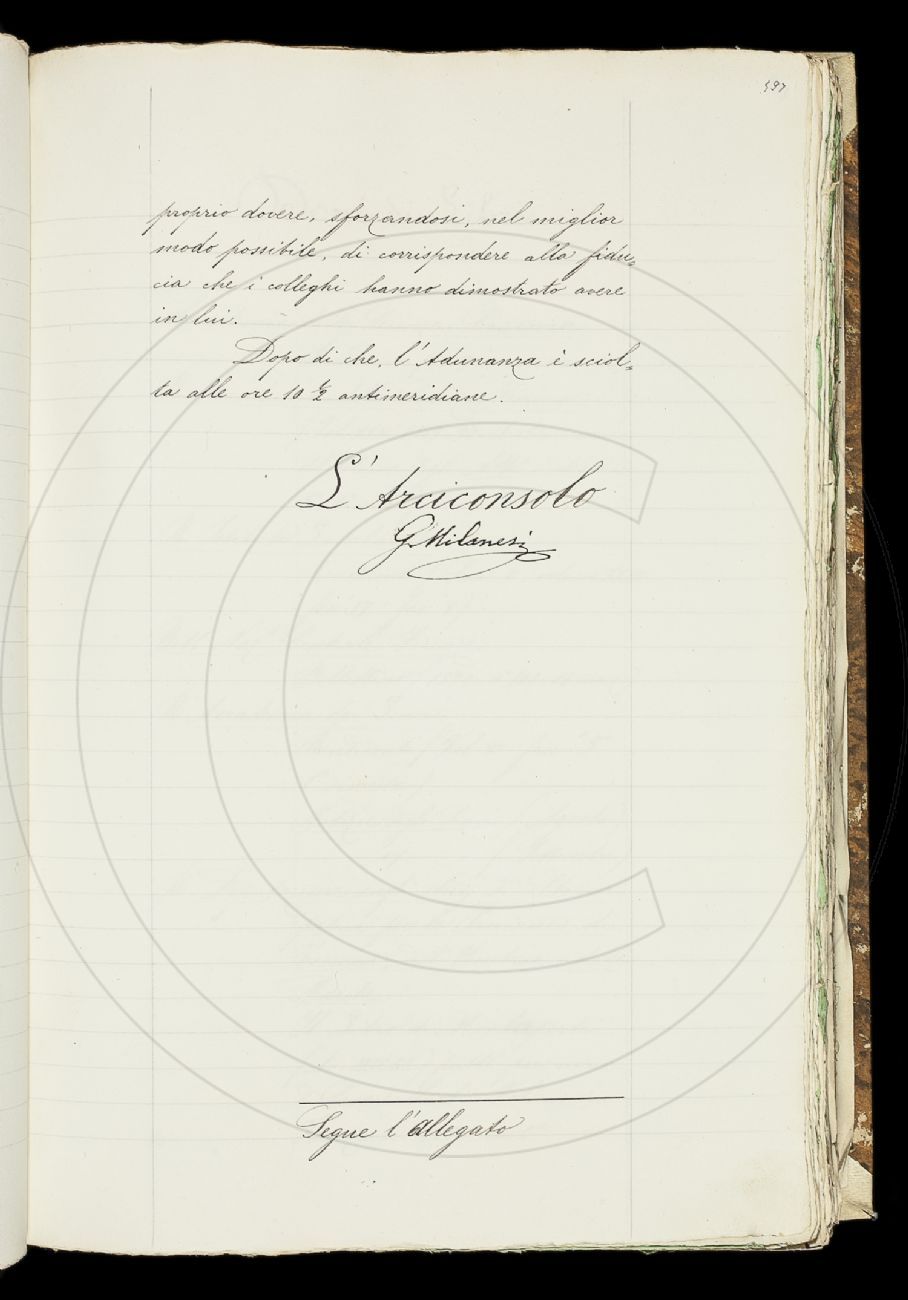 597
proprio dovere, sforzandosi, nel miglior
modo possibile, di corrispondere alla fidu=
cia che i colleghi hanno dimostrato avere
in lui.
Dopo di che, l'Adunanza è sciol=
ta alle ore 10 ½ antimeridiane.
L'Arciconsolo
G. Milanesi
Segue l'allegato